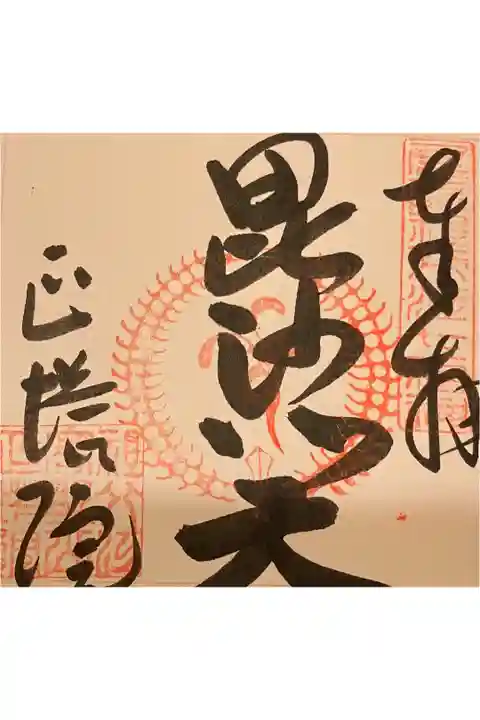 奉拝
毘沙門天
正塔院